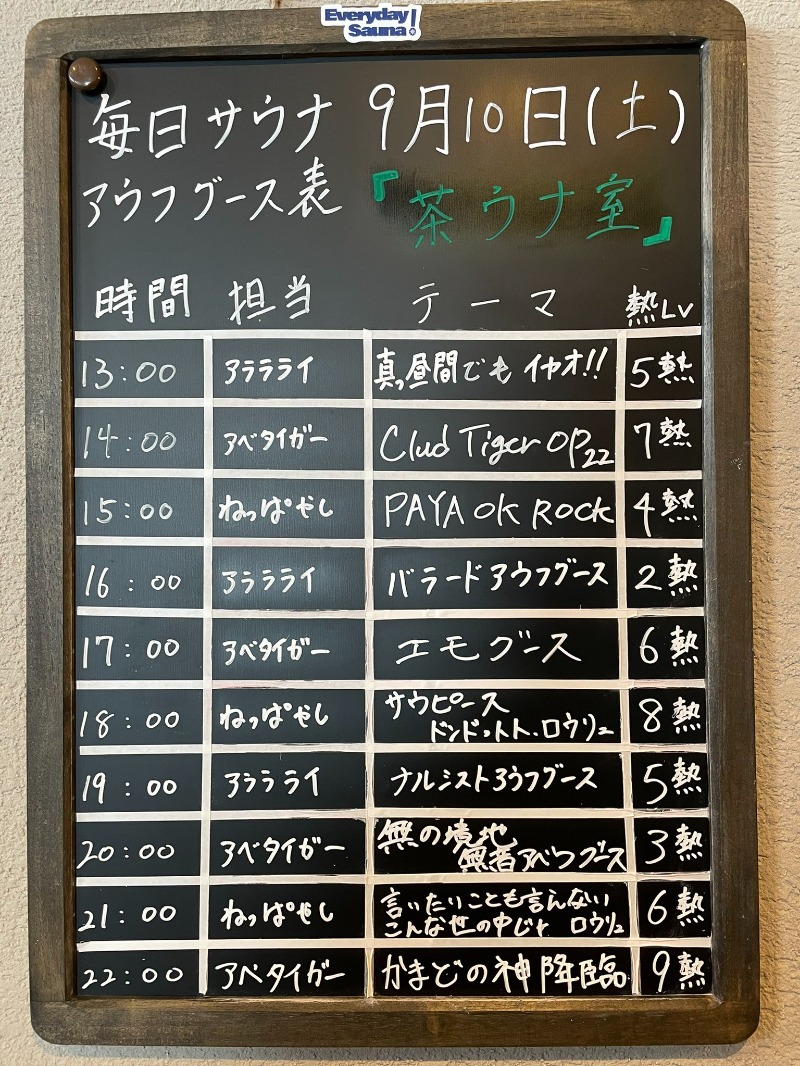 Everyday
Sauna!
毎日サウナ 9月10日(土)
アウフグース表 『茶ウナ室』
時間 担当 テーマ 熱Lv
13:00 アララライ 真っ昼間でも イヤオ!! 5熱
14:00 アベタイガー Clud Tiger OP22 7熱
15:00 ねっぱやし PAYA OK ROCK 4熱
16:00 アララライ バラードアウフグース 2熱
17:00 アベタイガー エモグース 6熱
18:00 ねっぱやし サウピース 8熱
ドンドットト・ロウリュ
19:00 アララライ ナルシストアウフグース 5熱
20:00 アベタイガー 無の境地 3熱
無者アベフグース
21:00 ねっぱやし 言いたいことも言えない 6熱
こんな世の中じゃ ロウリュ
22:00 アベタイガー かまどの神降臨 9熱